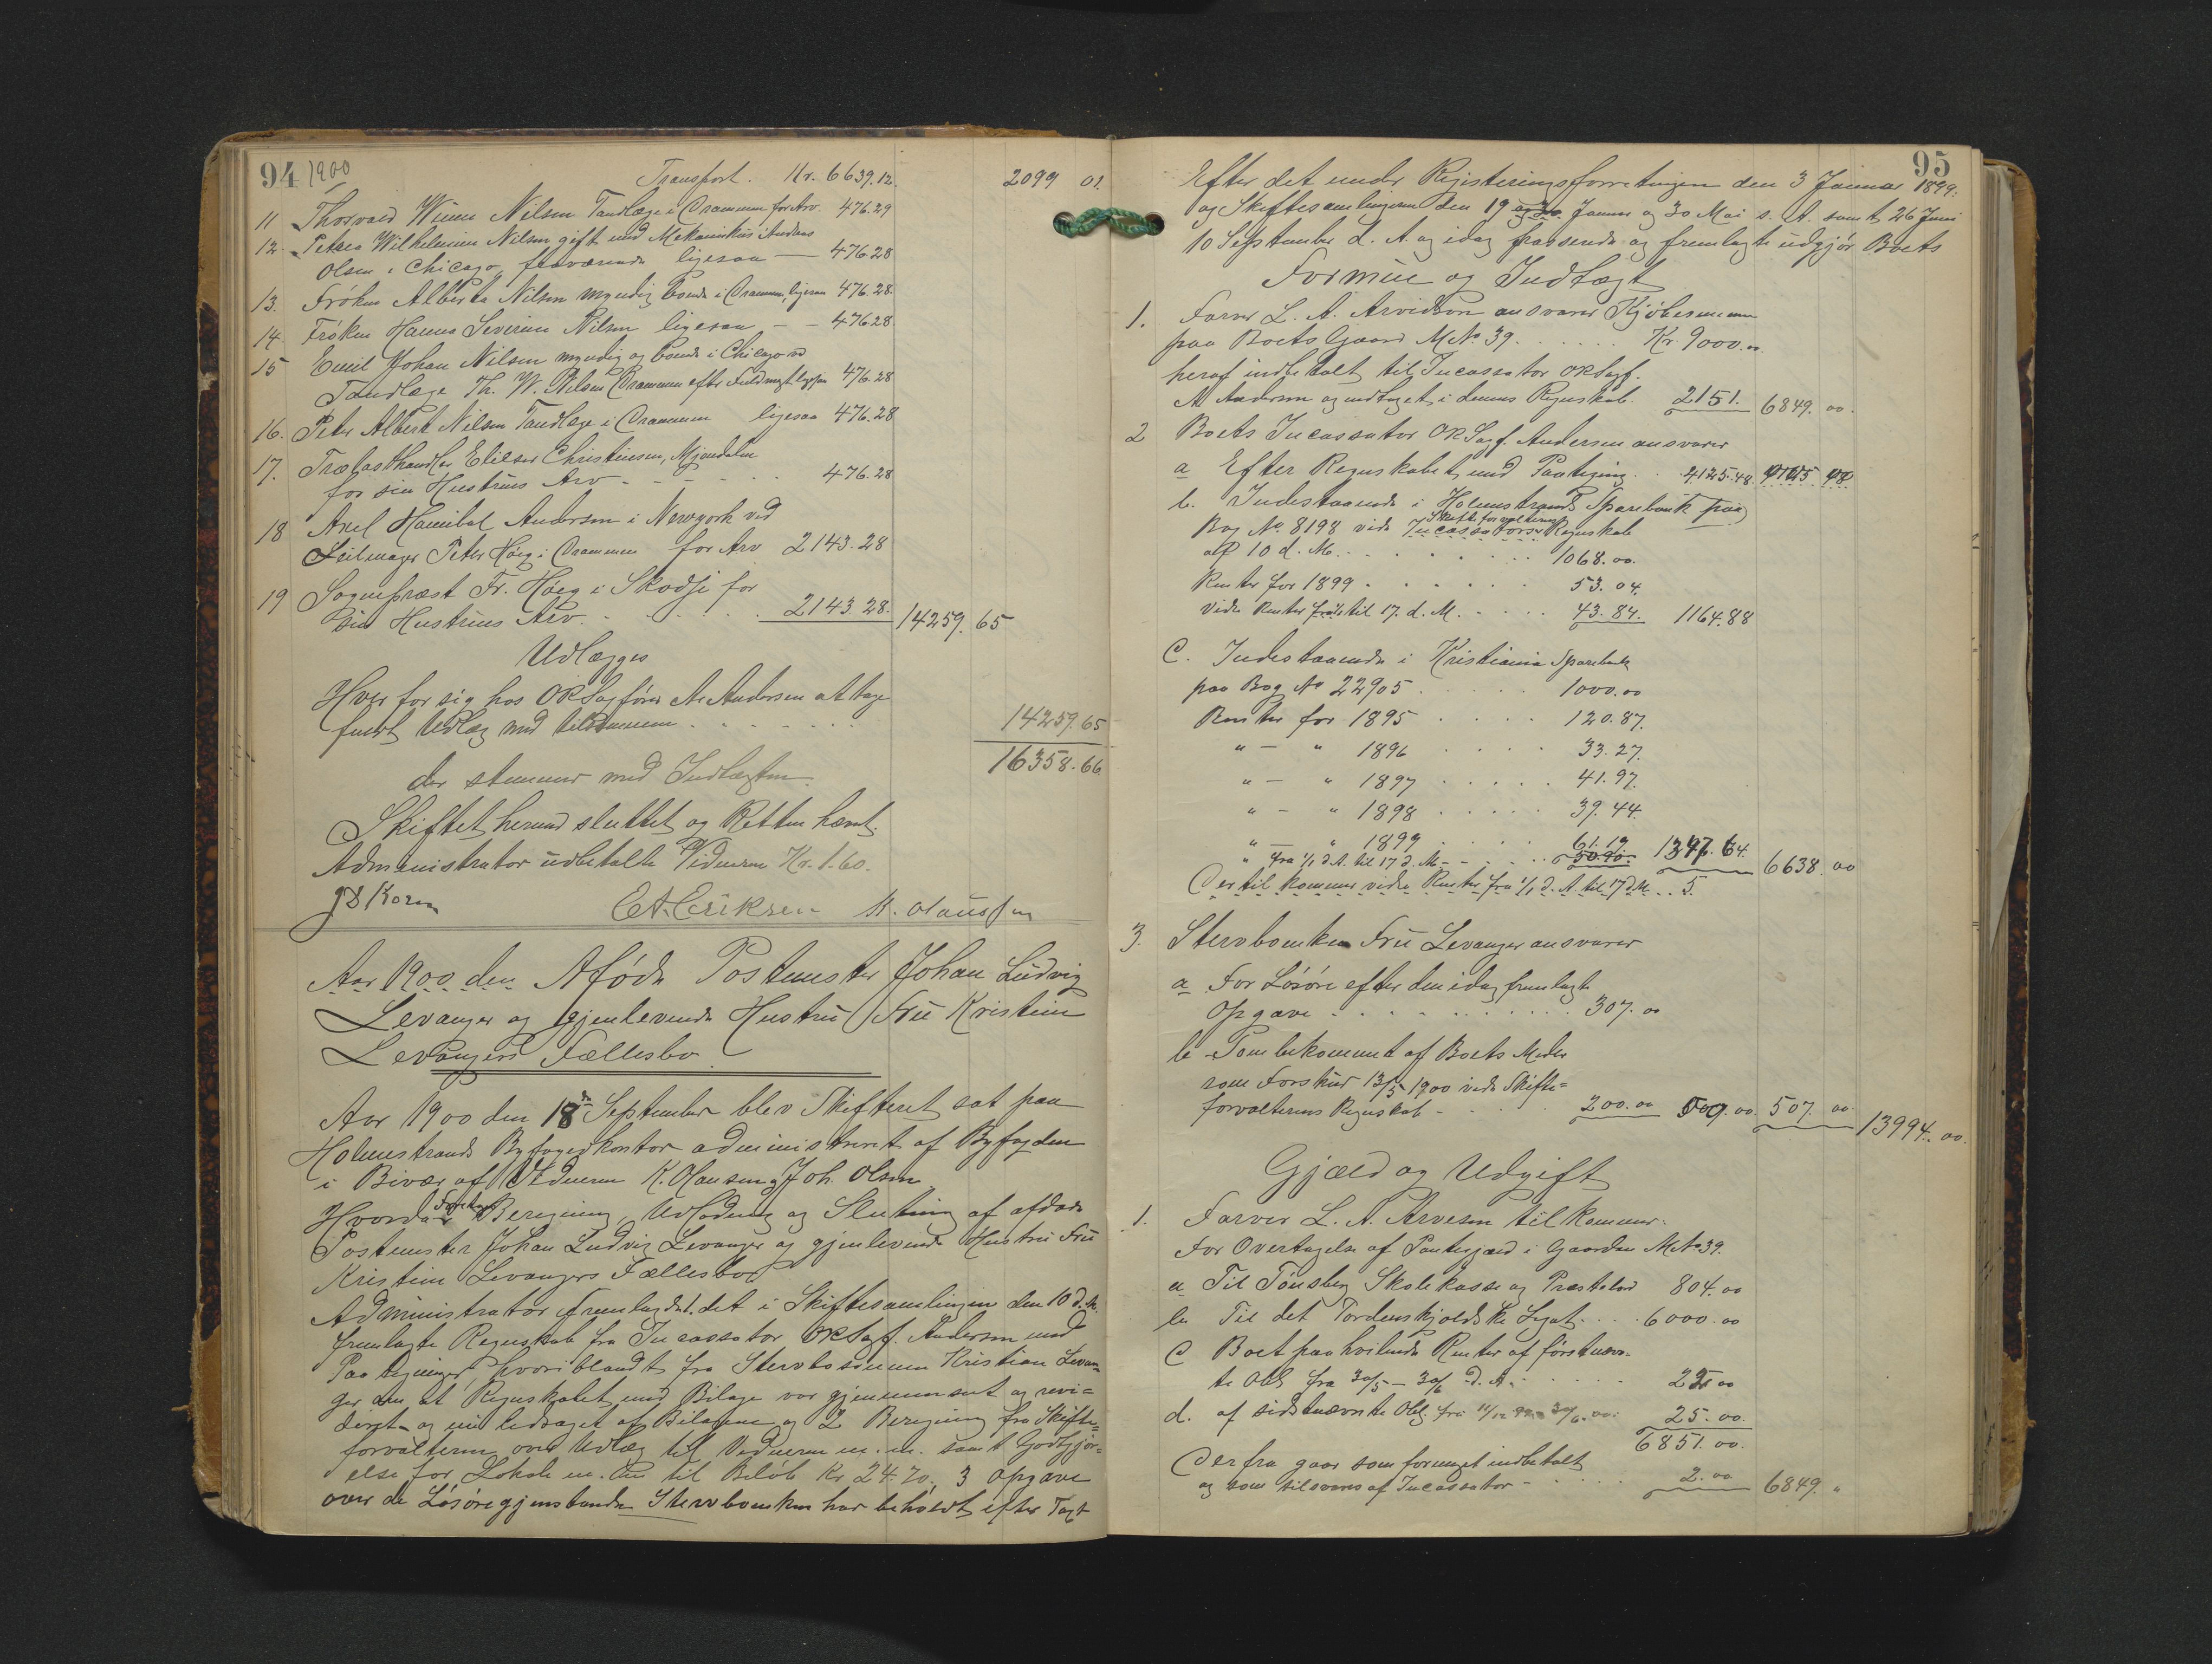 94 1900
Transport. Kr. 6639.12. 2099 01.
11 Thorvald Winn Nilsen Tandlæge i Drammen for Arv. 476.29
12. Petrea Wilhelmine Nilsen gift med Mekanikus Andreas
Olsen i Chicago, fraværende ligesaa — 476.28
13. Frøken Alberta Nilsen myndig boende i Drammen, ligesaa 476.28.
14. Frøken Hanna Severine Nilsen ligesaa - - 476.28.
15 Emil Johan Nilsen myndig og boende i Chicago ved
Tandlæge Th. W. Nilsen Drammen efter Fuldmagt ligesaa 476.28
16. Peter Albert Nilsen Tandlæge i Drammen ligesaa 476.28
17. Trælasthandler Elieser Christensen, Mjøndalen
for sin Hustrues Arv - - - - 476.28
18 Axel Hannibal Andersen i Newyork ved
Seilmager Peter Høeg i Drammen for Arv 2143.28
19 Sogneprest Fr. Høeg i Skodje for
sin Hustrues Arv. - - - 2143.28. 14259. 65
Udlægges
Hver for sig hos ORSagfører A. Andersen at tage
fuldt Udlæg med tilsammen - - - - - 14259.65
16358.66.
der stemmer med Indtægten.
Skiftet herved sluttet og Retten hævet.
Administrator udbetalte Vidnerne Kr. 1.60.
E. A. Eriksen K. Olaussen
Aar 1900 den Afdøde Postmester Johan Ludvig
Levanger og gjenlevende Hustru Fru Kristine
Levangers Fællesbo
Aar 1900 den 18de September blev Skifteret sat paa
Holmestrands Byfogedkontor administreret af Byfogden
i Bivær af Vidnerne K. Olausen og Joh. Olsen
Hvorda Foretoges Beregning, Udlodning og Slutning af afdøde
Postmester Johan Ludvig Levanger og gjenlevende Hustru Fru
Kristine Levangers Fællesbo
Administrator fremlagde 1. det i Skiftesamlingen den 10 d. M.
fremlagte Regnskab fra Incassator ORSagf. Andersen med
Paategninger, hvoriblandt fra Stervbosønnen Kristian Levan-
ger om at Regnskabet med Bilage var gjennemseet og revi=
deret og nu ledsaget af Bilagene og 2 Beregning fra Skifte=
forvalteren over Udlæg til Vidnerne m. m. samt Godtgjør=
else for Lokale m. m. til Beløb Kr 24.70. 3 Opgave
over de Løsøregjenstande Stervboenken har beholdt efter Taxt
95
Efter det under Registreringsforretningen den 3 Januar 1899.
og Skiftesamlingerne den 19 og 30. Januar og 30 Mai s. A. samt 26 Juni
10 September d. A. og idag passerede og fremlagte udgjør Boets
Formue og Indtægt
1. Farver L. A. Arvidson ansvarer Kjøbesummen
paa Boets Gaard M No. 39. . . . . . Kr. 9000.00.
heraf indbetalt til Incassator ORSagf.
A Andersen og indtaget i dennes Regnskab. 2151. 6849. 00.
2 Boets Incassator ORSagf. Andersen ansvarer
a Efter Regnskabet med Paategning . . 4125.48. 4125 48
b. Indestaaende i Holmestrands Sparebank paa
Bog No 8198 vide Skifteforvalterens Incassators Regnskab
af 10 d. M. . . . . . . 1068.00.
Renter for 1899 . . . . . 53.04.
vide Renter fra 1/1 til 17. d. M. - - - - 43.84. 1164.88
C. Indestaaende i Kristiania Sparebank
paa Bog No 22905 . . . . . 1000.00
Renter for 1895 . . . . 120.87.
" — " 1896 . . . . 33.27.
" — " 1897 . . . . . 41.97.
" — " 1898 . . . . . 39.44.
" — " 1899 . . . . 61.19 1347. 64.
" fra 1/1 d. A. til 17 d. M - - - - 50.90. 6638. 00
Dertil kommer videre Renter fra 1/1 d. A. til 17 d. M. . . 5.
3. Stervboenken Fru Levanger ansvarer
a For Løsøre efter den idag fremlagte
Opgave . . . . . . . . . . 307. 00
b Som bekommet af Boets Midler
som Forskud 13/5 1900 vide Skifte=
forvalterens Regnskab - . . . . 200.00 507. 00. 507. 00 13994. 00.
Gjæld og Udgift
1. Farver L. A. Arvesen tilkommer.
For Overtagelse af Pantegjæld i Gaarden M No 39.
a Til Tønsberg Skolekasse og Præstebord 804.00
b Til det Tordenskjoldske Legat . . . . 6000.00
C Boet paahvilende Renter af førstnævn-
te Obl. fra 30/5 — 30/6 d. A. . . . . . 22.00
d. af sidstnævnte Obl. fra 11/12 99 - 30/6. 00. 25.00.
6851.00.
Derfra gaar som formeget indbetalt
og som tilsvares af Incassator - - - - 2.00 6849. "